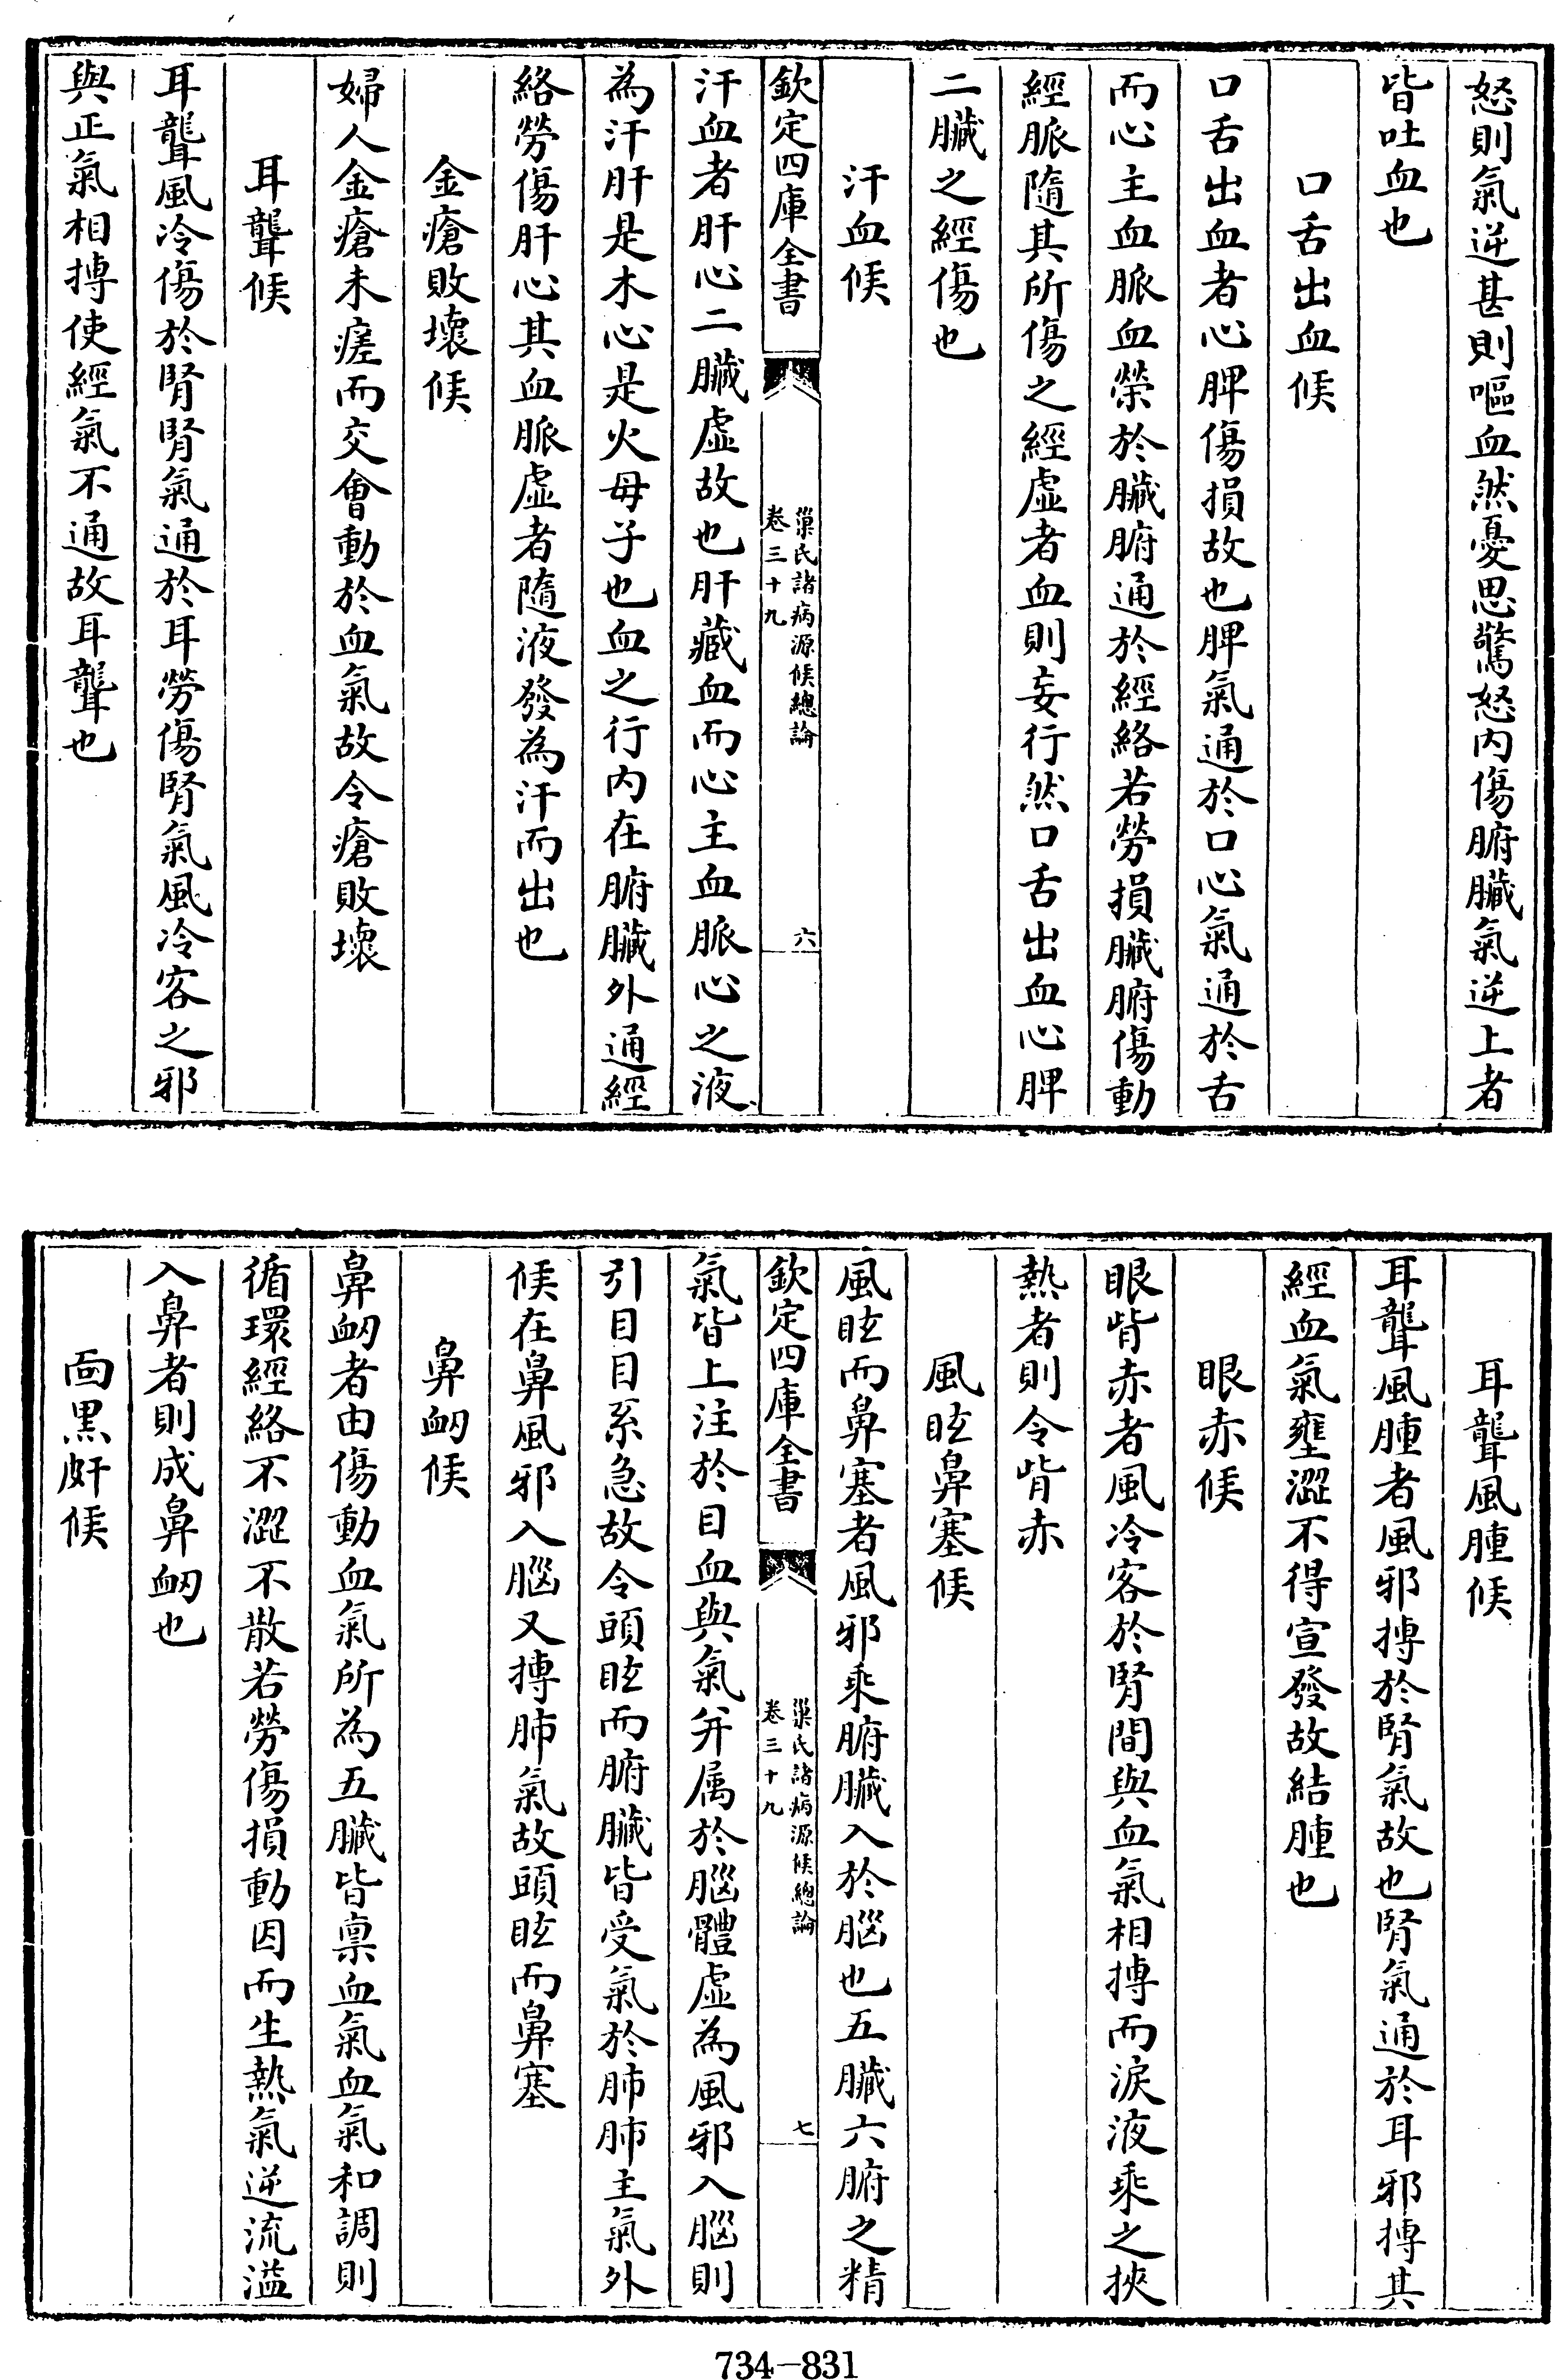 怒則氣逆甚則嘔血然憂思驚怒内傷腑臟氣逆上者
皆吐血也
口舌出血候
口舌出血者心脾傷損故也脾氣通於口心氣通於舌
而心主血脈血榮於臟腑通於經絡若勞損臟腑傷動
經脈隨其所傷之經虛者血則妄行然口舌出血心脾
二臟之經傷也
汗血候
欽定四庫全書
巢氏諸病源候總論
卷三十九
六
汗血者肝心二臟虛故也肝藏血而心主血脈心之液
為汗肝是木心是火母子也血之行内在腑臟外通經
絡勞傷肝心其血脈虛者隨液發為汗而出也
金瘡敗壞候
婦人金瘡未瘥而交會動於血氣故令瘡敗壞
耳聾候
耳聾風冷傷於腎腎氣通於耳勞傷腎氣風冷客之邪
與正氣相搏使經氣不通故耳聾也
耳聾風腫候
耳聾風腫者風邪搏於腎氣故也腎氣通於耳邪搏其
經血氣壅澀不得宣發故結腫也
眼赤候
眼眥赤者風冷客於腎間與血氣相搏而淚液乘之挾
熱者則令眥赤
風眩鼻塞候
風眩而鼻塞者風邪乘腑臟入於腦也五臟六腑之精
欽定四庫全書
巢氏諸病源候總論
卷三十九
七
氣皆上注於目血與氣并属於腦體虛為風邪入腦則
引目目系急故令頭眩而腑臟皆受氣於肺肺主氣外
候在鼻風邪入腦又搏肺氣故頭眩而鼻塞
鼻衂候
鼻衂者由傷動血氣所為五臟皆禀血氣血氣和調則
循環經絡不澀不散若勞傷損動因而生熱氣逆流溢
入鼻者則成鼻衂也
面黑皯候
734-831